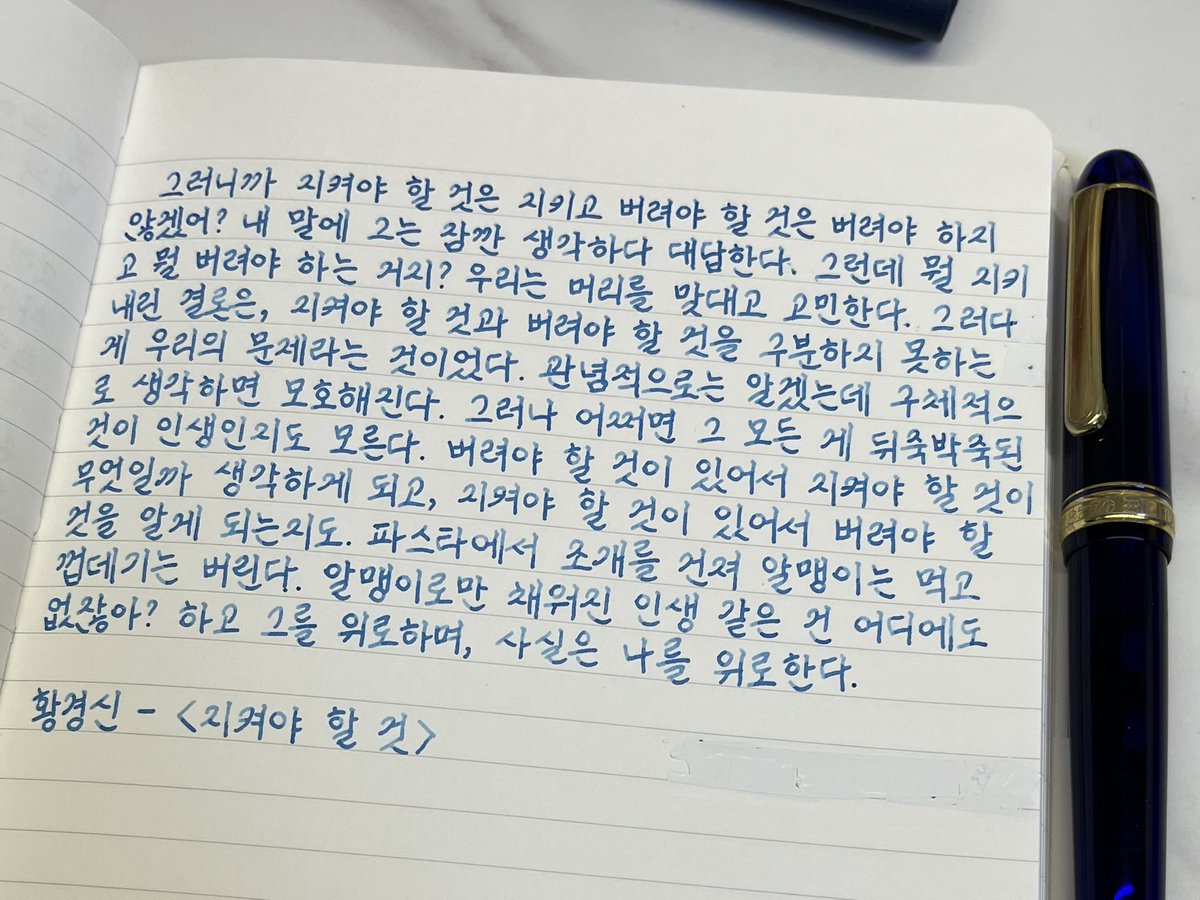 그러니까 지켜야 할 것은 지키고 버려야 할 것은 버려야 하지
않겠어? 내 말에 그는 잠깐 생각하다 대답한다. 그런데 뭘 지키
고 뭘 버려야 하는 거지? 우리는 머리를 맞대고 고민한다. 그러다
내린 결론은, 지켜야 할 것과 버려야 할 것을 구분하지 못하는
게 우리의 문제라는 것이었다. 관념적으로는 알겠는데 구체적으
로 생각하면 모호해진다. 그러나 어쩌면 그 모든 게 뒤죽박죽된
것이 인생인지도 모른다. 버려야 할 것이 있어서 지켜야 할 것이
무엇일까 생각하게 되고, 지켜야 할 것이 있어서 버려야 할
것을 알게 되는지도. 파스타에서 조개를 건져 알맹이는 먹고
껍데기는 버린다. 알맹이로만 채워진 인생 같은 건 어디에도
없잖아? 하고 그를 위로하며, 사실은 나를 위로한다.
황경신 - <지켜야 할 것>